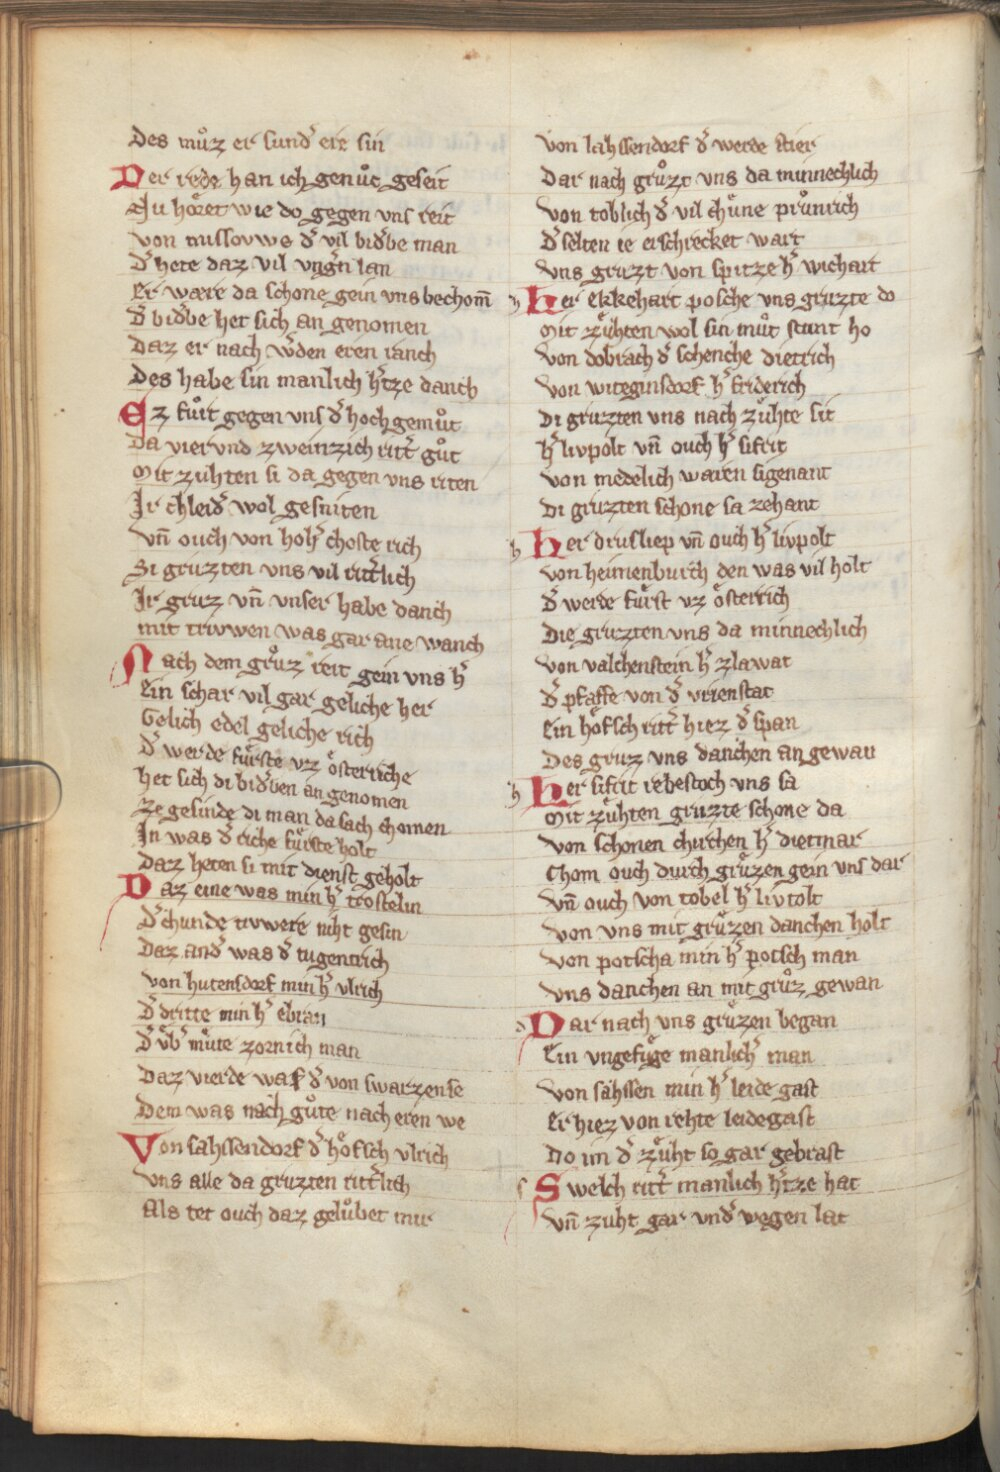 Des muͦz er sundˀ ere sin
Der rede han ich genuͦc geseit
Nu hoͤret wie do gegen vns reit
von missovwe dˀ vil bidˀbe man
dˀ hete daz vil vngˀn lan
Er wære da schone gein vns bechom̄
dˀ bidˀbe het sich an genomen
Daz er nach wˀden eren ranch
Des habe sin manlich hˀtze danch
Ez fuͦrt gegen vns dˀ hochgemuͦt
Da vier vnd zweinzich rittˀ guͦt
Mit zuhten si da gegen vns riten
Ir chleidˀ wol gesniten
vn̄ ouch von hohˀ choste rich
Si gruzten vns vil rittˀlich
Ir gruz vn̄ vnser habe danch
mit trivwen was gar ane wanch
Nach dem gruͦz reit gein vns hˀ
Ein schar vil gar geliche her
Gelich edel geliche rich
dˀ werde fuͤrste vz oͤsterriche
het sich di bidˀben an genomen
Ze gesinde di man da sach chomen
In was dˀ riche fuͤrste holt
Daz heten si mit dienst geholt
Daz eine was min hˀ trostelin
dˀ chunde trvwere niht gesin
Daz andˀ was dˀ tugentrich
von hutensdorf min hˀ vlrich
dˀ dritte min hˀ ebran
dˀ uͤbˀ muͤte zornich man
Daz vierde was dˀ von swarzense
Dem was nach guͦte nach eren we
Von sahssendorf dˀ hoͤfsch vlrich
vns alle da gruzten rittˀlich
Als tet ouch daz geluͦbet mir
von lahssendorf dˀ werde stier
Dar nach gruͦzt vns da minnechlich
von toblich dˀ vil chuͤne pruͤnrich
dˀ selten ie erschrecket wart
vns gruzt von spitze hˀ wichart
h Her ekkehart posche vns gruzte do
Mit zuͤhten wol sin muͦt stunt ho
von dobrach dˀ schenche dietrich
von witeginsdorf hˀ friderich
Di gruzten vns nach zuͤhte sit
hˀ livpolt vn̄ ouch hˀ sifrit
von medelich waren si genant
Di gruzten schone sa zehant
h Her drusliep vn̄ ouch hˀ livpolt
von heimenburch den was vil holt
dˀ werde fuͤrst vz oͤsterrich
Die gruzten vns da minnechlich
von valchenstein hˀ zlawat
dˀ pfaffe von dˀ vrienstat
Ein hoͤfsch rittˀ hiez dˀ span
Des gruz vns danchen an gewan
h Her sifrit rebestoch vns sa
Mit zuͤhten gruzte schone da
von schonen chirchen hˀ dietmar
chom ouch durch gruͤzen gein vns dar
vn̄ ouch von tobel hˀ livtolt
von vns mit gruͤzen danchen holt
von potscha min hˀ potsch man
vns danchen an mit gruͦz gewan
d Dar nach vns gruͤzen began
Ein vngefuͤge manlichˀ man
von sahssen min hˀ leide gast
Er hiez von rehte leidegast
Do im dˀ zuͤht so gar gebrast
s Swelch rittˀ manlich hˀtze hat
vn̄ zuht gar vndˀ wegen lat